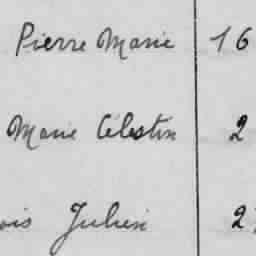 Pierre Marie 16
Marie Célestin 2
ois Julien 2